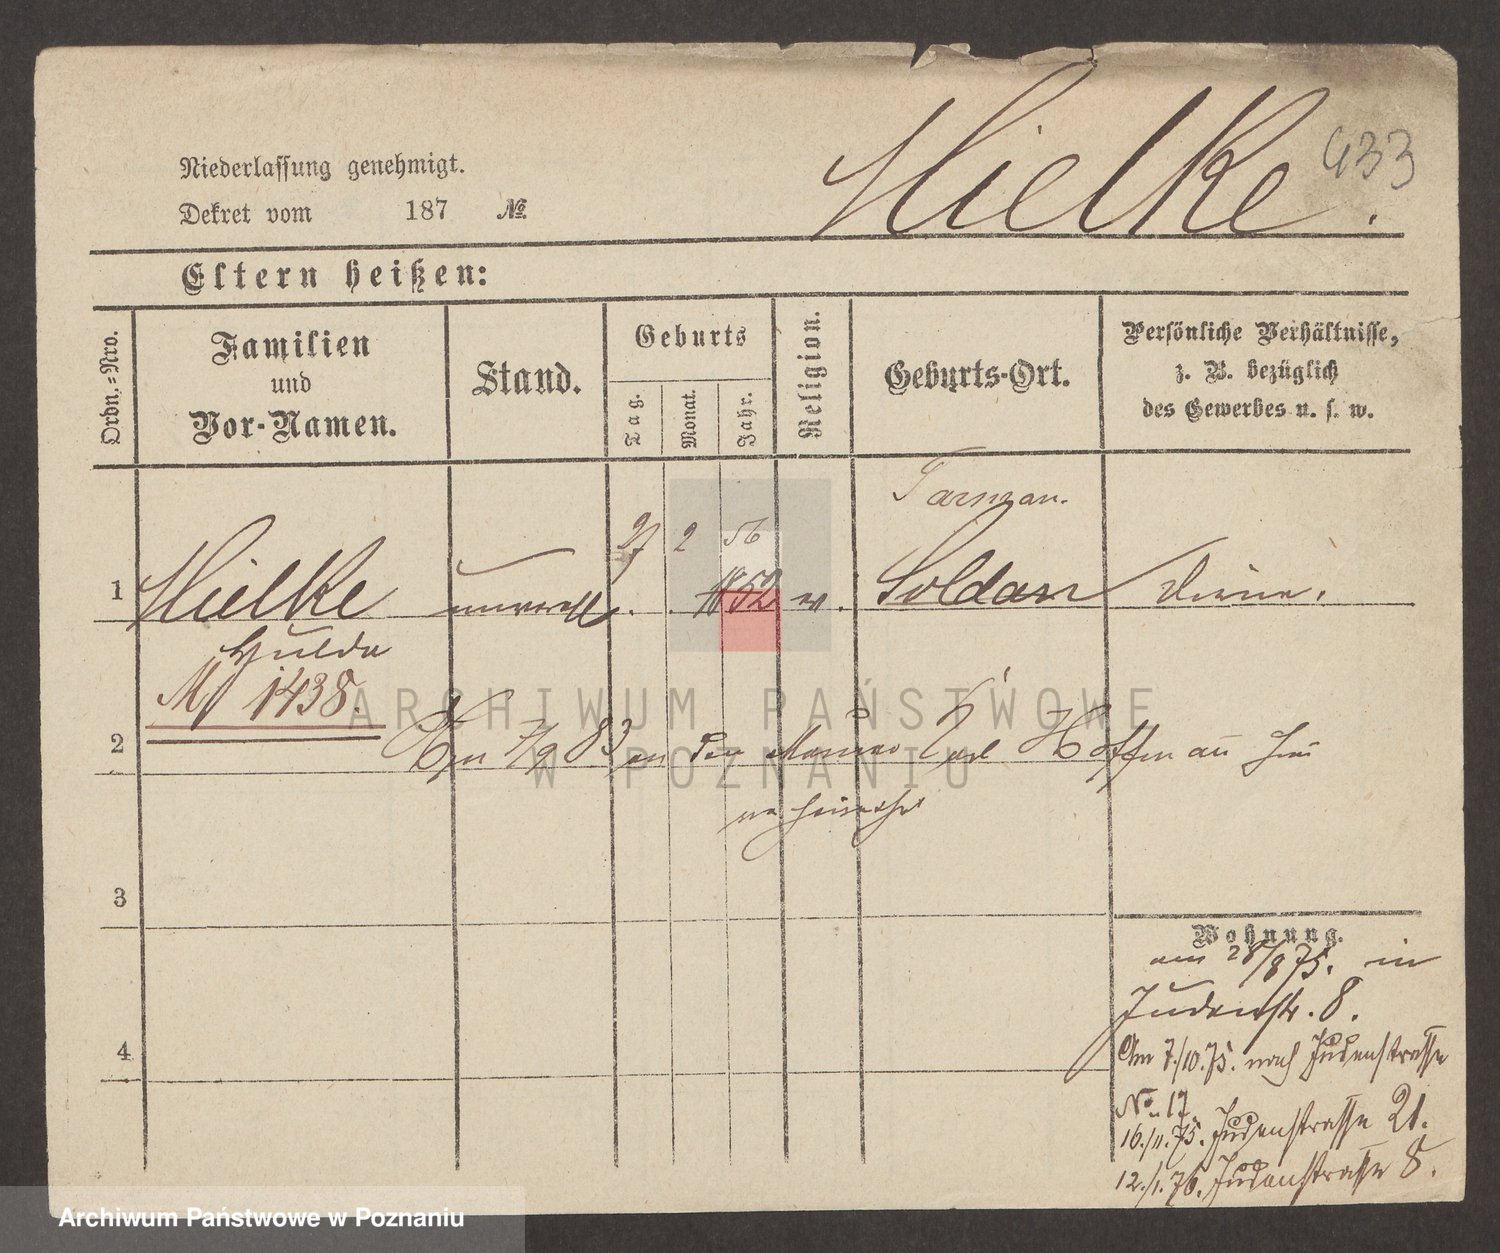 433
Mielke.
Niederlassung genehmigt.
Dekret vom 187 №
Eltern heißen:
Ordn.=Nro.
Familien
und
Vor-Namen.
Stand.
Geburts
Tag.
Monat.
Jahr.
Religion.
Geburts-Ort.
Persönliche Verhältnisse,
z. B. bezüglich
des Gewerbes u. s. w.
27 2 56
1 Mielke 1852 Soldau
Hulda
1438.
2 7/9 83 an den Karl Hoffmann
3
Wohnung.
am 28/8 75. in
Judenstr. 8.
4
Am 7./10. 75. nach Judenstrasse
No. 17
16./11. 75. Judenstrasse 21.
12./1. 76. Judenstrasse 8.
ARCHIWUM PAŃSTWOWE
W POZNANIU
Archiwum Państwowe w Poznaniu